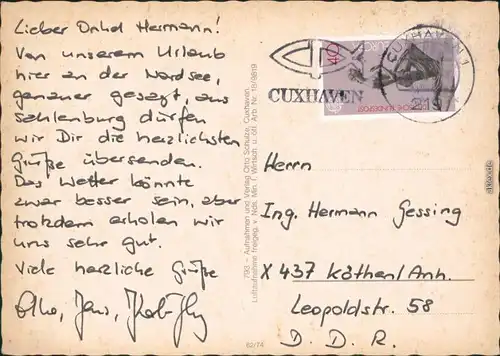 Lieber Onkel Hermann!
Von unserem Urlaub
hier an der Nordsee,
genauer gesagt, aus
Sahlenburg dürfen
wir Dir die herzlichsten
Grüße übersenden.
Das Wetter könnte
zwar besser sein, aber
trotzdem erholen wir
uns sehr gut.
Viele herzliche Grüße
793 – Aufnahmen und Verlag Otto Schulze, Cuxhaven
Luftaufnahme freigeg. v. Nds. Min. f. Wirtsch. u. öff. Arb. Nr. 18/9819
62/74
CUXHAVEN
40
EUROPA
CUXHAVEN 1
2190
Herrn
Ing. Hermann Gessing
X 437 Köthen/Anh.
Leopoldstr. 58
D. D. R.